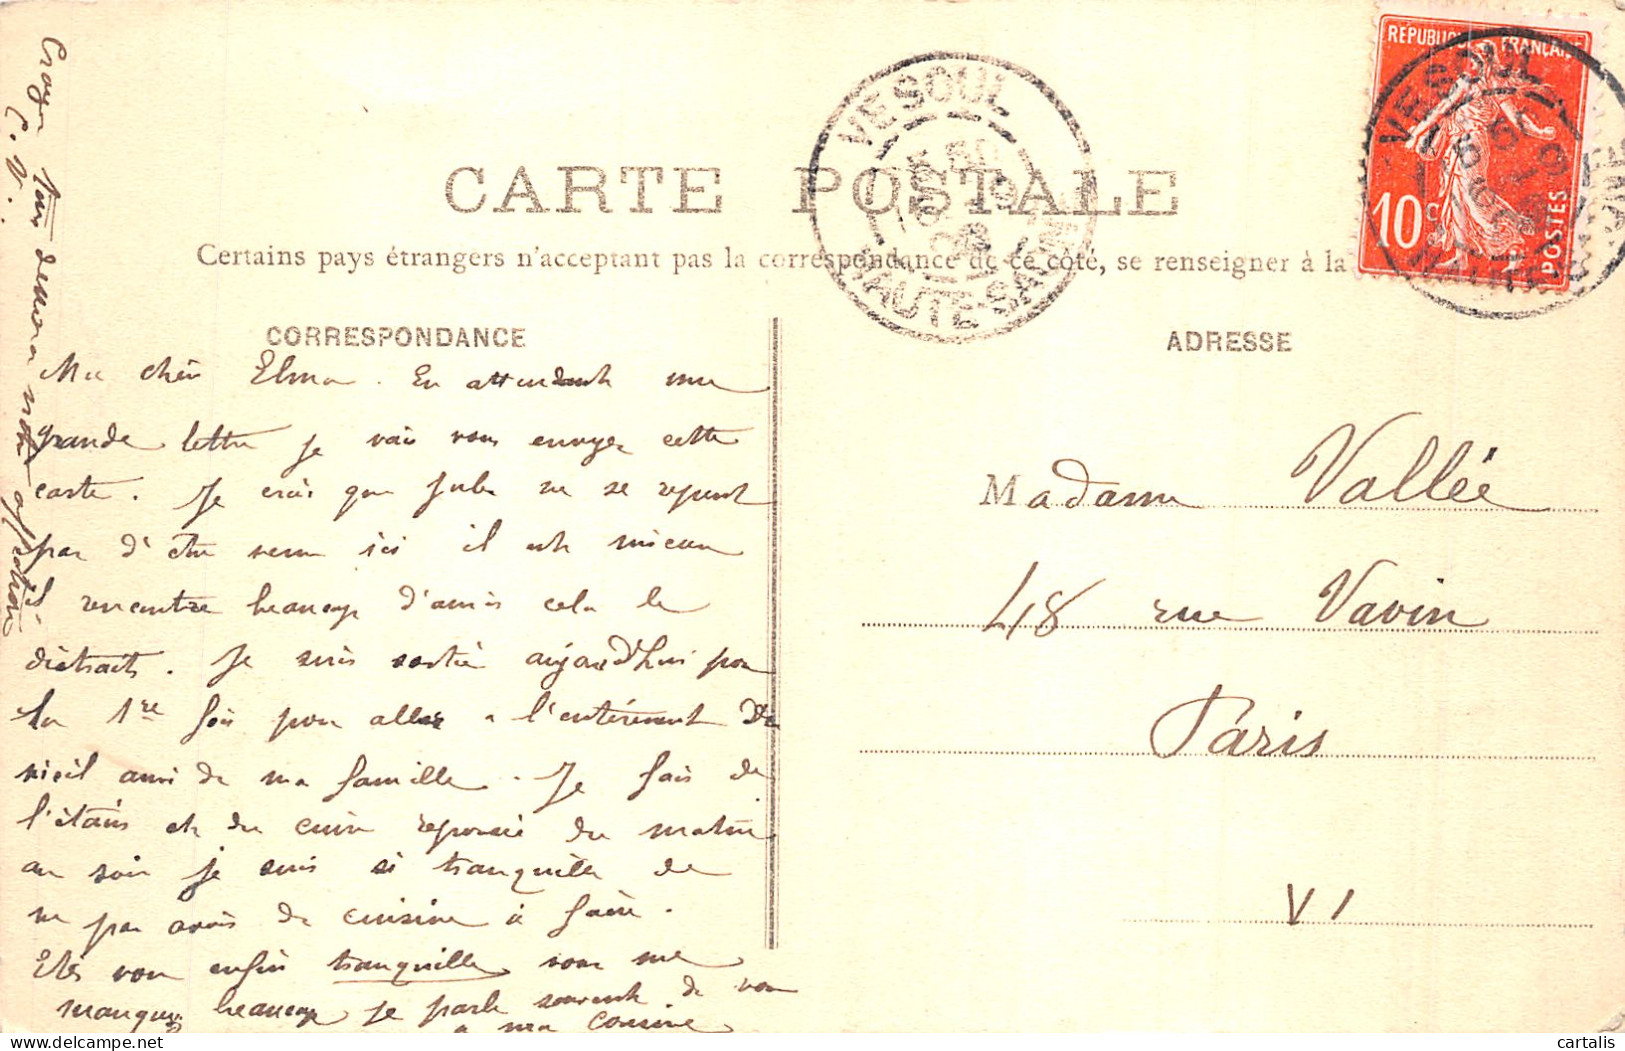 CARTE POSTALE
Certains pays étrangers n'acceptent pas la correspondance de ce côté, se renseigner à la
CORRESPONDANCE
ADRESSE
REPUBLIQUE FRANÇAISE
10 c
POSTES
VESOUL
HAUTE-SAONE
VESOUL
HAUTE-SAONE
Ma chère Elma. En attendant une
grande lettre je vais vous envoyer cette
carte. Je crois que Jules ne se repent
pas d'être venu ici il est mieux
il rencontre beaucoup d'amis cela le
distrait. Je suis sortie aujourd'hui pour
la 1re fois pour aller a l'enterrement d'un
vieil ami de ma famille. Je fais de
l'étain et du cuir repoussé du matin
au soir je suis si tranquille de
ne pas avoir de cuisine à faire.
Etes vous enfin tranquille vous me
manquez beaucoup je parle souvent de vous
a ma cousine
Croyez tous deux a notre affection
C. V.
Madame Vallée
48 rue Vavin
Paris
VI
cartalis